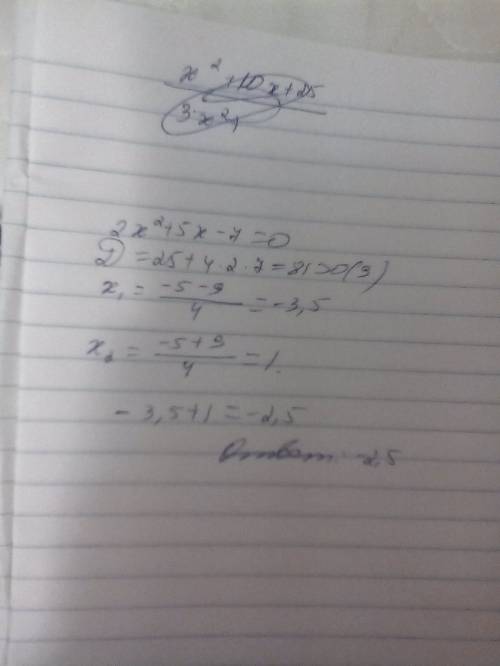 x² + 10x + 25
3x²
2x² + 5x - 7 = 0
D = 25 + 4·2·7 = 81 > 0 (9)
x₁ = (-5 - 9)/4 = -3,5
x₂ = (-5 + 9)/4 = 1.
- 3,5 + 1 = -2,5
Ответ: -2,5